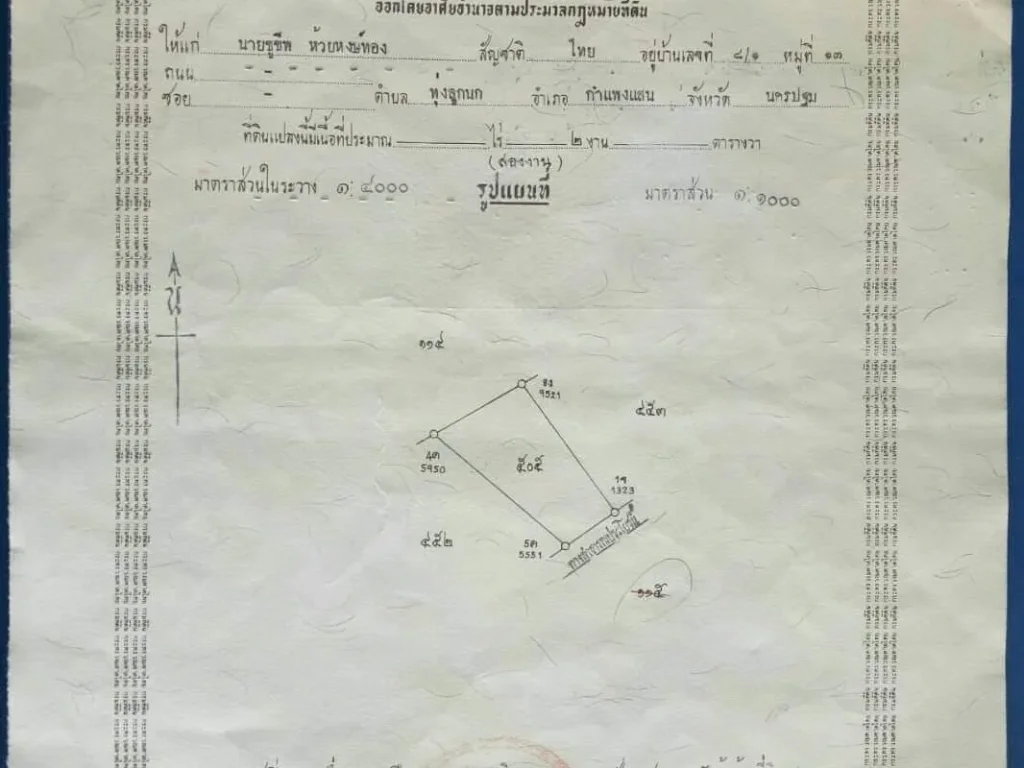 ออกโดยอาศัยอำนาจตามประมวลกฎหมายที่ดิน
ให้แก่ นายชูชีพ ห้วยหงษ์ทอง สัญชาติ ไทย อยู่บ้านเลขที่ ๘/๑ หมู่ที่ ๑๓
ถนน -
ซอย - ตำบล ทุ่งลูกนก อำเภอ กำแพงแสน จังหวัด นครปฐม
ที่ดินแปลงนี้มีเนื้อที่ประมาณ ไร่ ๒ งาน ตารางวา
(สองงาน)
มาตราส่วนในระวาง ๑:๔๐๐๐ รูปแผนที่ มาตราส่วน ๑:๑๐๐๐
น
๑๑๔
9521
๔๕๓
4ค
5950
๕๐๕
1323
๔๕๒
5ค
5551
ทางสาธารณประโยชน์
๑๑๕